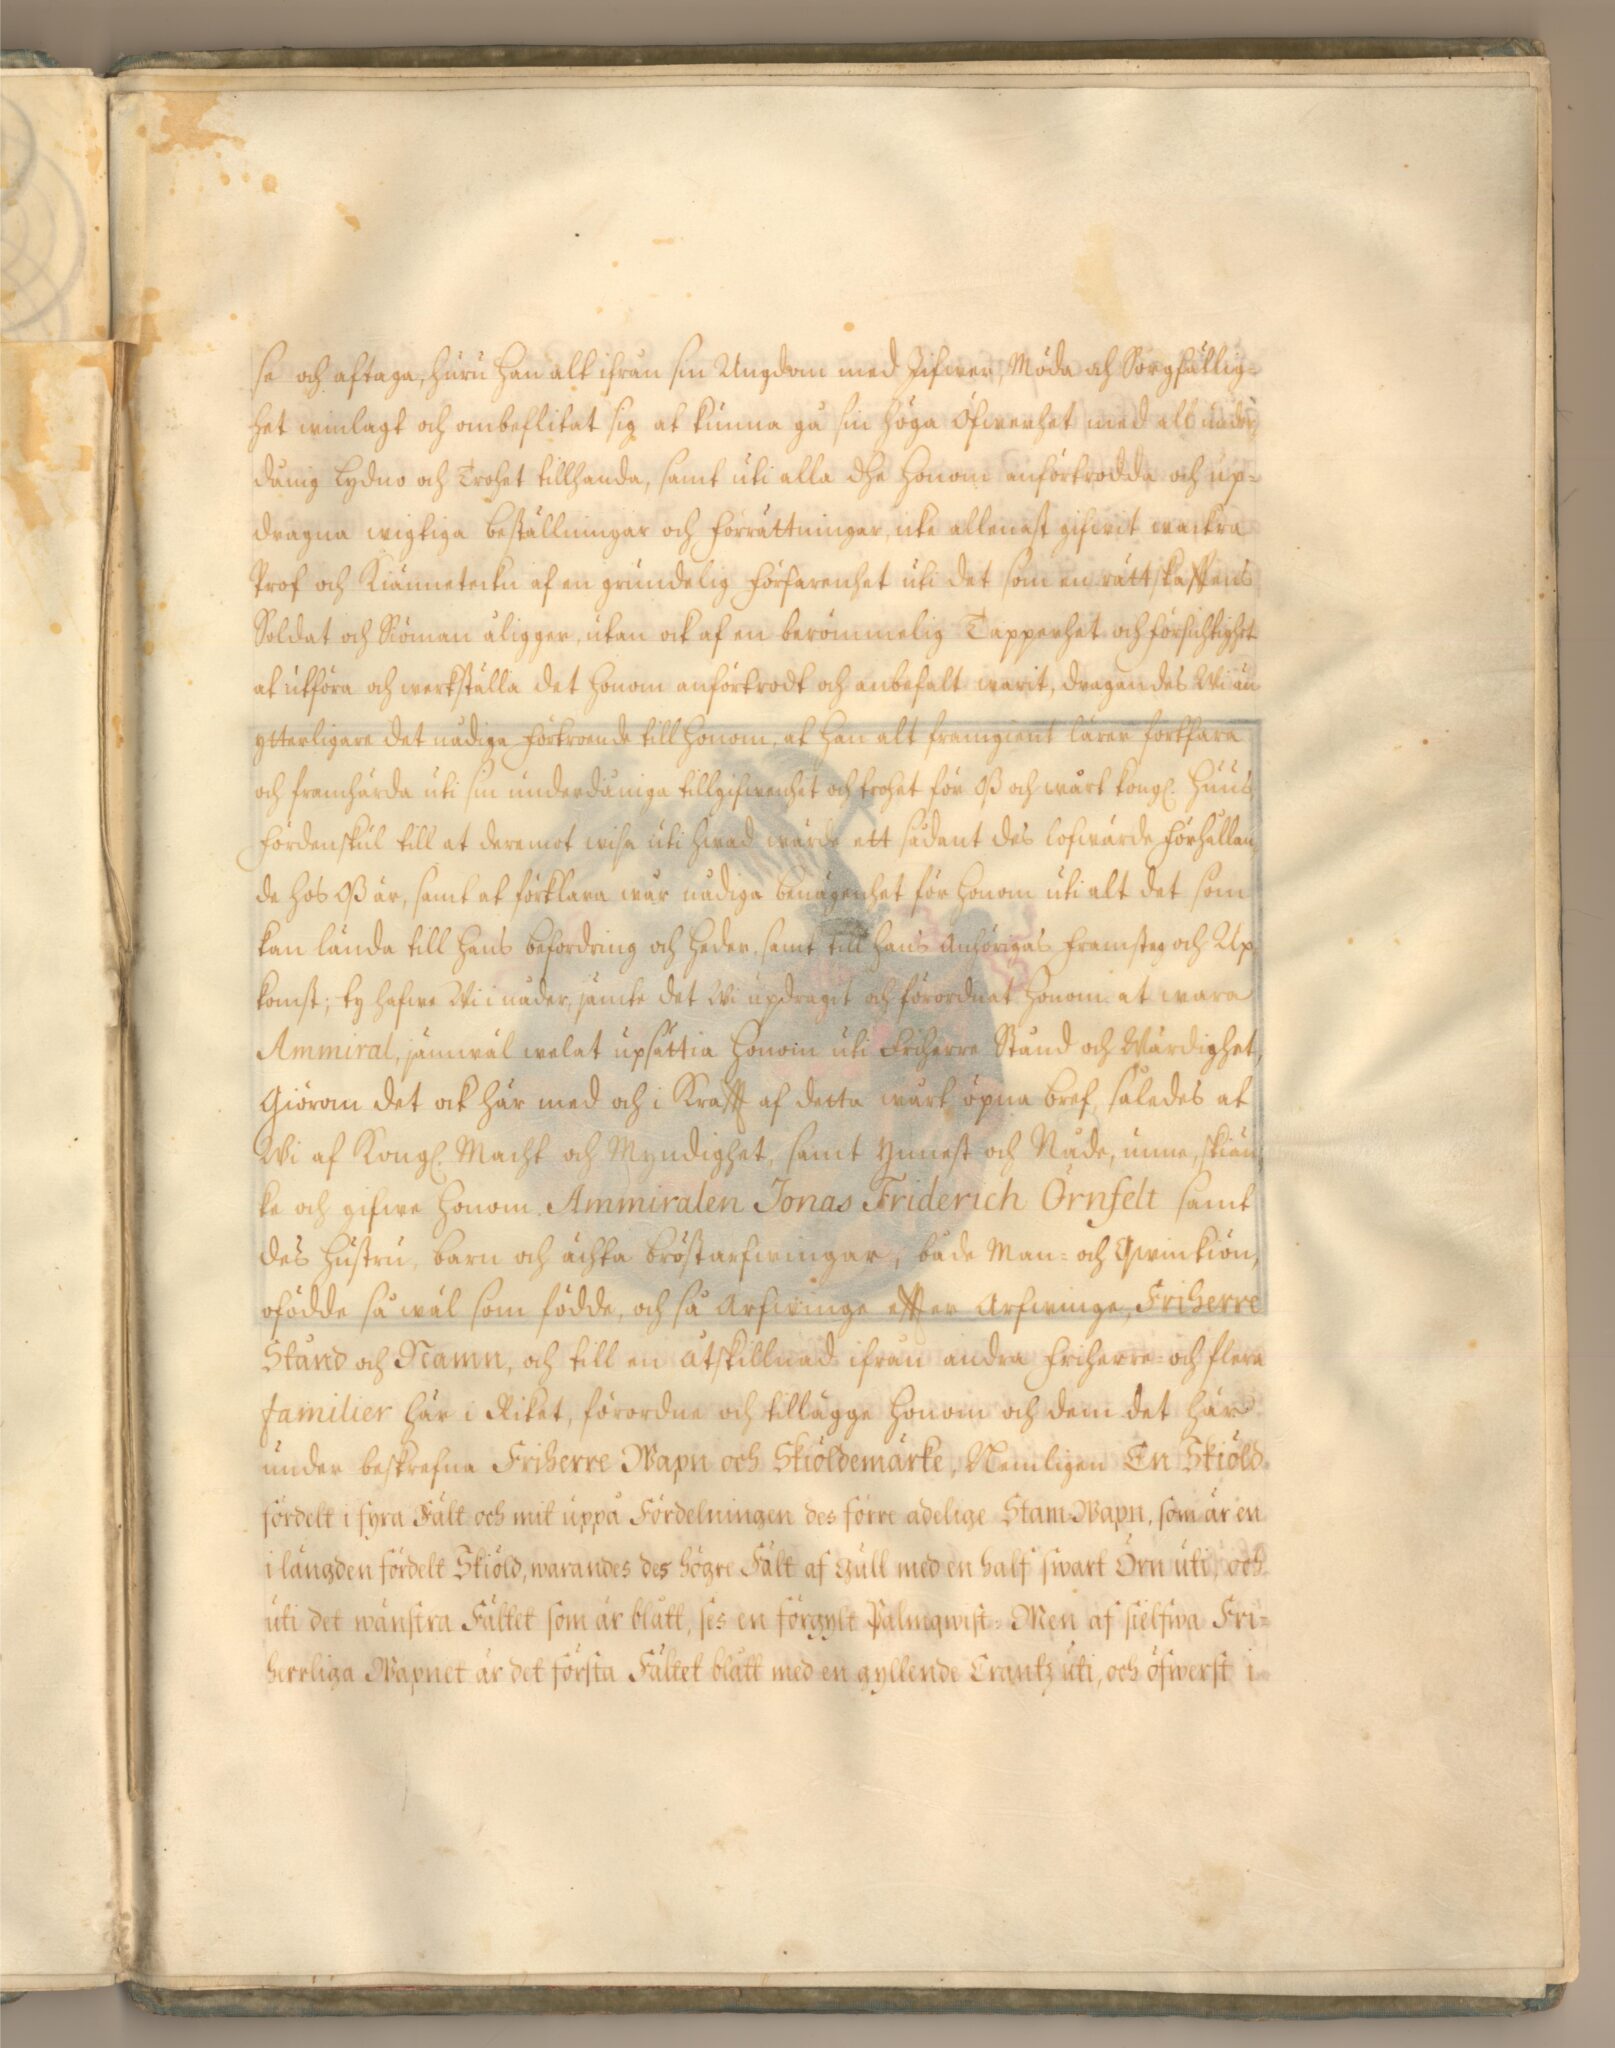 se och aftaga, huru Han alt ifrån sin Ungdom med Jfwer, Möda och Sorgfällig=
het winlagt och ombeflitat sig at kunna gå sin höga Öfwerhet med all under,
dånig Lydno och Trohet tillhanda, samt uti alla dhe Honom anförtrodda och up=
dragna wigtiga beställningar och Förrättningar, icke allenast gifwit wackra
Prof och Kiännetecken af en grundelig Förfarenhet uti det som en rättskaffens
Soldat och Siöman åligger, utan ock af en berömmelig Tapperhet och Försichtighet
at utföra och werkställa det Honom anförtrodt och anbefalt warit, dragandes Wi än
ytterligare det nådiga Förtroende till Honom, at Han alt framgient lärer fortfara
och framhärda uti sin underdåniga tillgifwenhet och trohet för Oß och wårt kongl. Huus,
Fördenskul till at deremot wisa uti hwad wärde ett sådant des lofwärde Förhållan,
de hos Oß är, samt at förklara wår nådiga benägenhet för Honom uti alt det som
kan lända till Hans befordring och Heder, samt till Hans Anhörigas Framsteg och Up,
komst; ty hafwe Wi i nåder, jämte det Wi updragit och förordnat Honom at wara
Ammiral, jämwäl welat upsättia Honom uti Friherre Stånd och Wärdighet,
Giörom det ock här med och i Krafft af detta wårt öpna bref, således at
Wi af Kongl. Macht och Myndighet, samt Ynnest och Nåde, unne, skiän,
ke och gifwe Honom Ammiralen Jonas Friderich Örnfelt samt
des Hustru, barn och ächta bröstarfwingar, både Man= och Qwinkiön,
ofödde så wäl som födde, och så Arfwinge effter Arfwinge, Friherre
Stånd och Namn, och till en åtskillnad ifrån andra Friherre= och flere
familier här i Riket, förordne och tillägge Honom och dem det här
under beskrefna Friherre Wapn och Skiöldemärke, Nemligen En Skiöld
fördelt i fyra Fält och mit uppå Fördelningen des förre adelige Stam-Wapn, som är en
i längden fördelt Skiöld, warandes des högre Fält af Gull med en half swart Örn uti, och
uti det wänstra Fältet som är blått, ses en förgylt Palmqwist= Men af sielfwa Fri=
herrliga Wapnet är det första Fältet blått med en gyllende Crantz uti, och öfwerst i